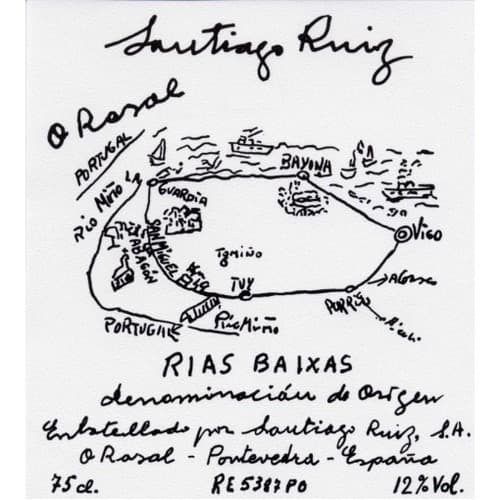 Santiago Ruiz
O Rosal
PORTUGAL
RIO MIÑO
LA
GUARDIA
BAYONA
VIGO
SAN MIGUEL
TABAGON
Tomiño
TUY
PORRIÑO
PORTUGAL
Rio Miño
RIAS BAIXAS
denominación de Origen
Embotellado por Santiago Ruiz, S.A.
O Rosal - Pontevedra - España
75 cl. RE5387PO 12% Vol.